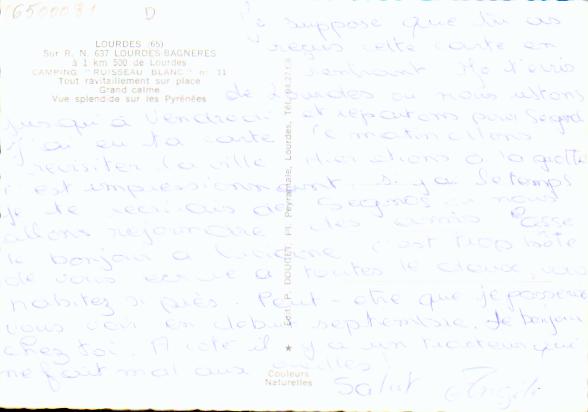 6500081
D
LOURDES (65)
Sur R. N. 637 LOURDES-BAGNERES
à 1 km 500 de Lourdes
CAMPING "RUISSEAU BLANC" nº 11
Tout ravitaillement sur place
Grand calme
Vue splendide sur les Pyrénées
Je suppose que tu as
reçus cette carte en
rentrant. Je t'écris
de Lourdes où nous restons
jusqu'à Vendredi et repartons pour
J'ai eu ta carte ce matin allons
revisiter la ville. Hier étions à la grotte
c'est impressionnant. Si j'ai le temps
je te écrirais de nous
allons rejoindre des amis Passe
le bonjour à c'est trop bête
de vous écrire à toutes le deux, vous
habitez si près. Peut-être que je passerai
vous voir en début septembre. le bonjour
chez toi. A côté il y a un tracteur qui
me fait mal aux oreilles!
Salut Angèle
Edit. P. DOUCET, Pl. Peyramale, Lourdes, Tél.
Couleurs
Naturelles